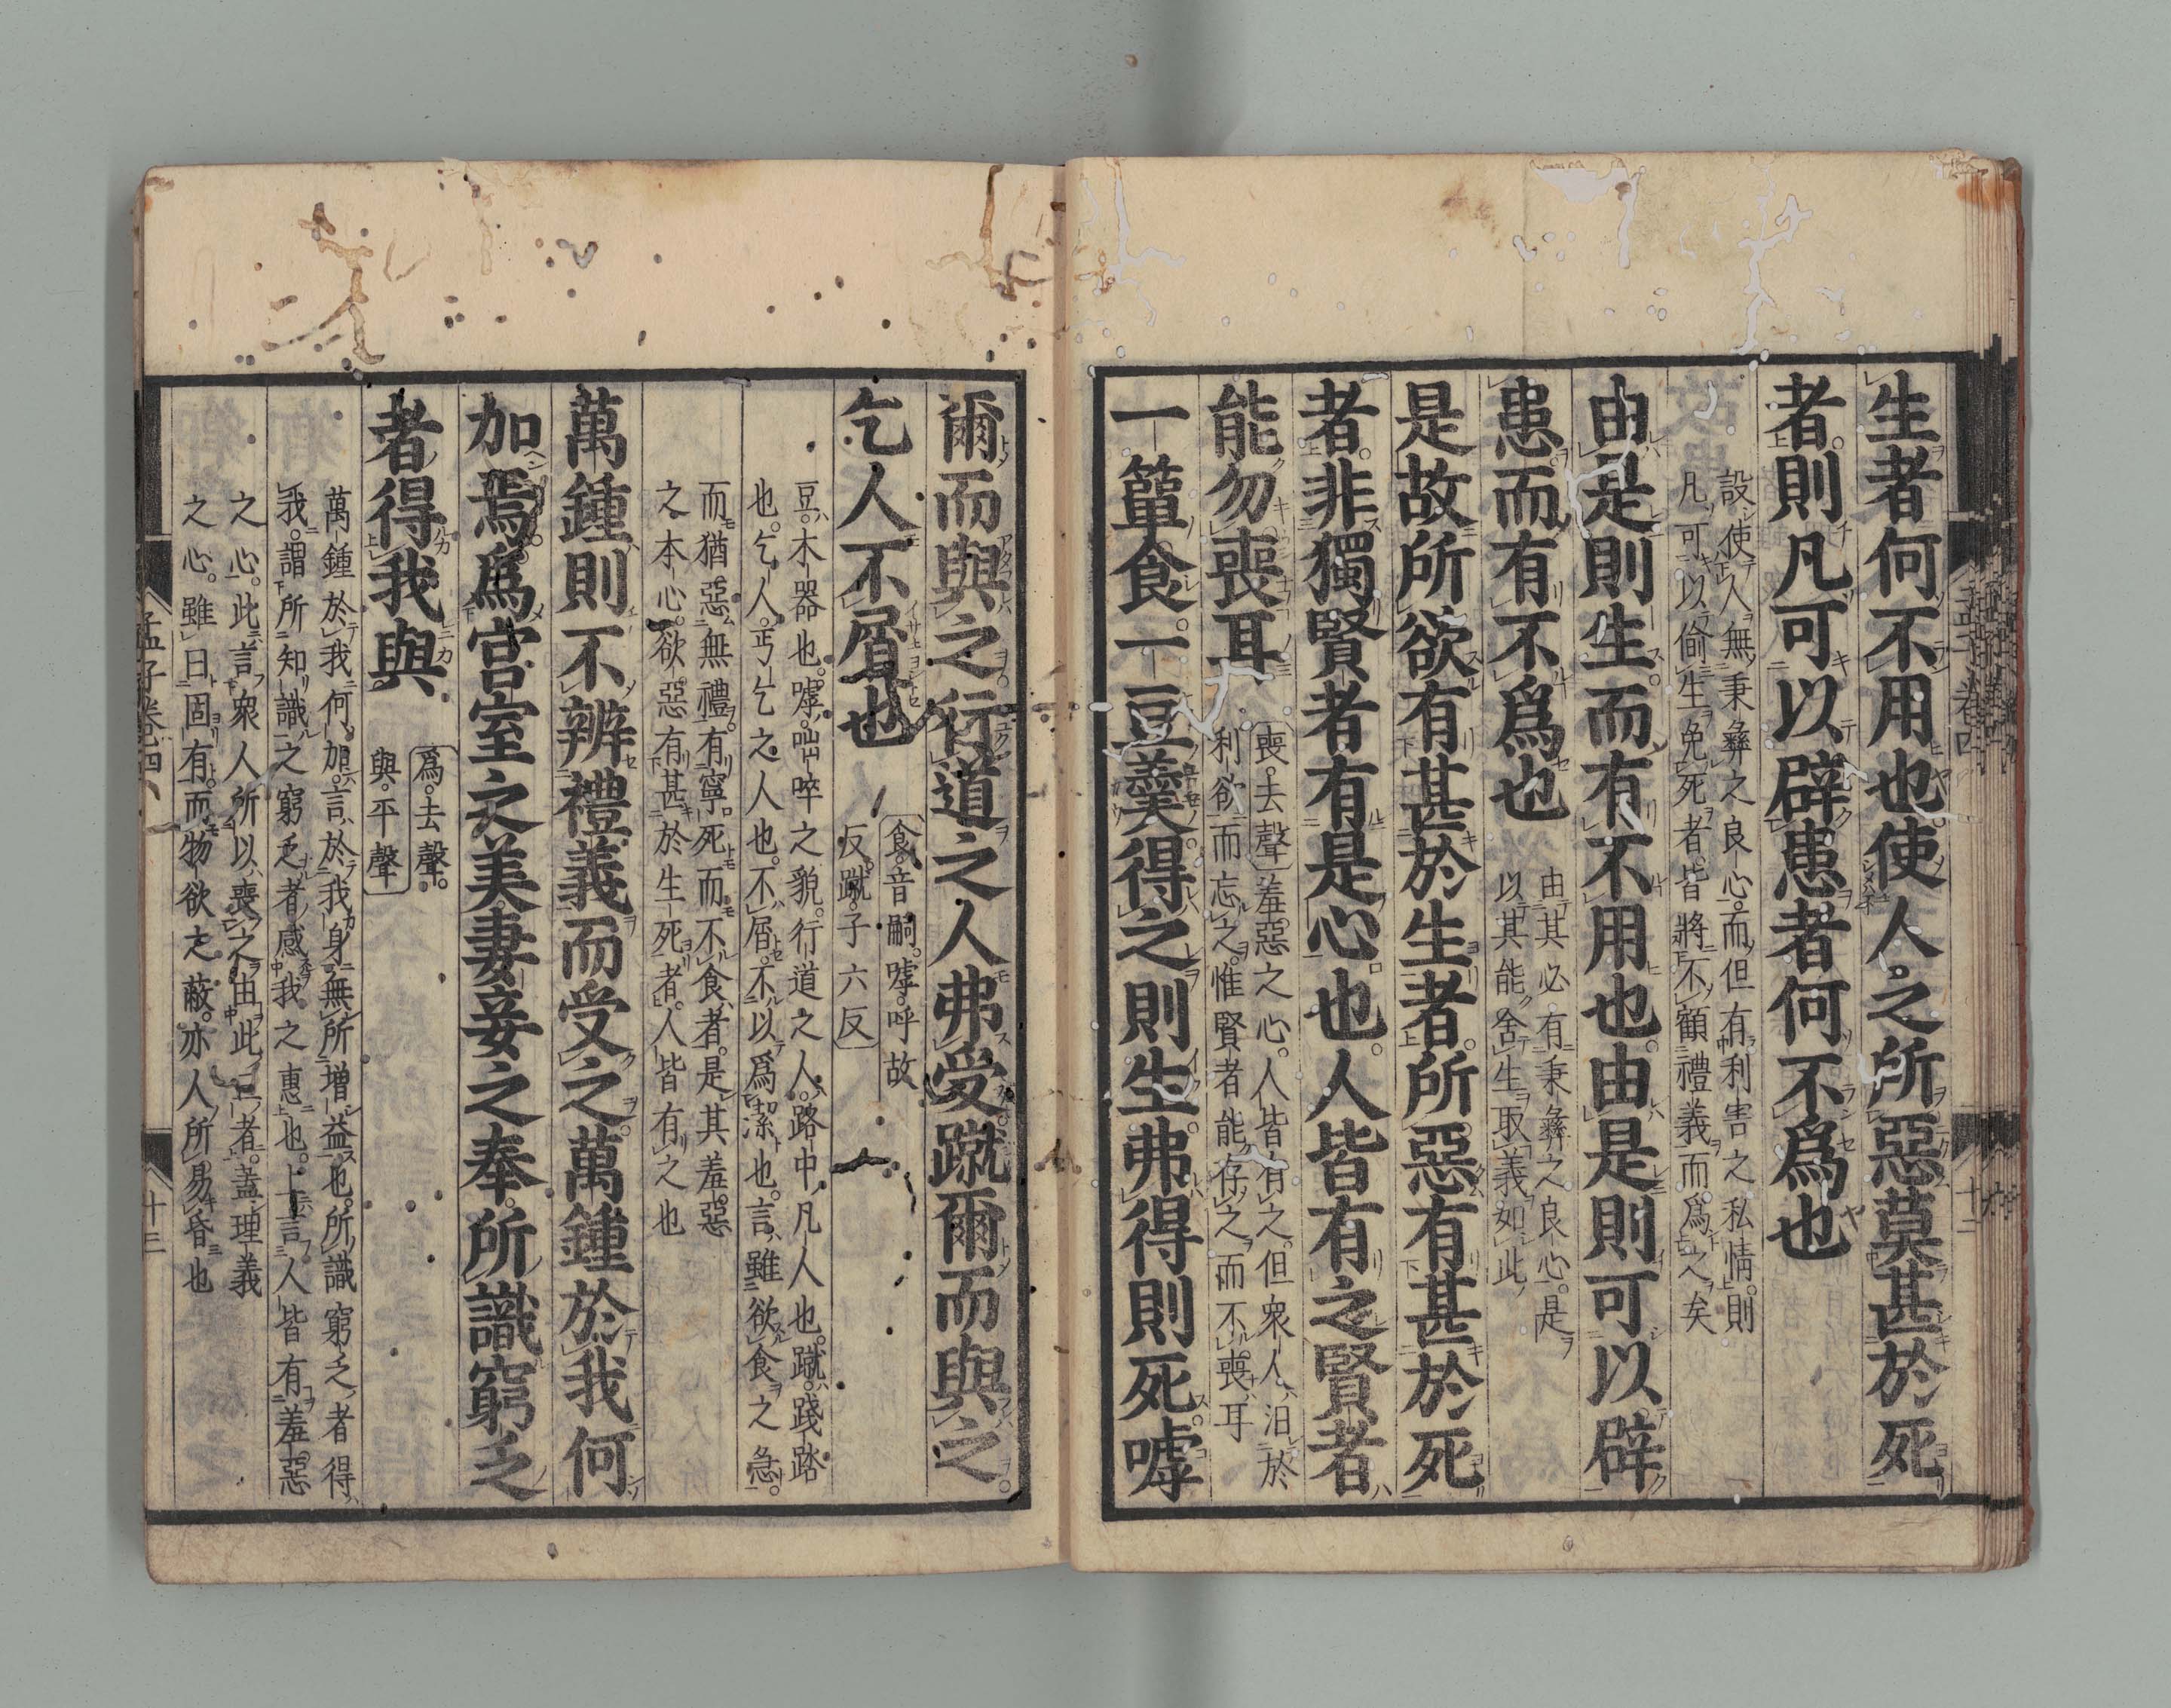 生者何不用也使人之所惡莫甚於死
者則凡可以辟患者何不爲也
設使人無秉彝之良心而但有利害之私情則
凡可以偷生免死者皆將不顧禮義而爲之矣
由是則生而有不用也由是則可以辟
患而有不爲也
由其必有秉彝之良心是
以其能舍生取義如此
是故所欲有甚於生者所惡有甚於死
者非獨賢者有是心也人皆有之賢者
能勿喪耳
喪去聲羞惡之心人皆有之但衆人汨於
利欲而忘之惟賢者能存之而不喪耳
一簞食一豆羹得之則生弗得則死嘑
爾而與之行道之人弗受蹴爾而與之
乞人不屑也
食音嗣嘑呼故
反蹴子六反
豆木器也嘑咄啐之貌行道之人路中凡人也蹴踐踏
也乞人丐乞之人也不屑不以爲潔也言雖欲食之急
而猶惡無禮有寧死而不食者是其羞惡
之本心欲惡有甚於生死者人皆有之也
萬鍾則不辨禮義而受之萬鍾於我何
加焉爲宮室之美妻妾之奉所識窮乏
者得我與
爲去聲
與平聲
萬鍾於我何加言於我身無所增益也所識窮乏者得
我謂所知識之窮乏者感我之惠也上言人皆有羞惡
之心此言衆人所以喪之由此三者蓋理義
之心雖曰固有而物欲之蔽亦人所易昏也
孟子卷四
十三
卷四
十二